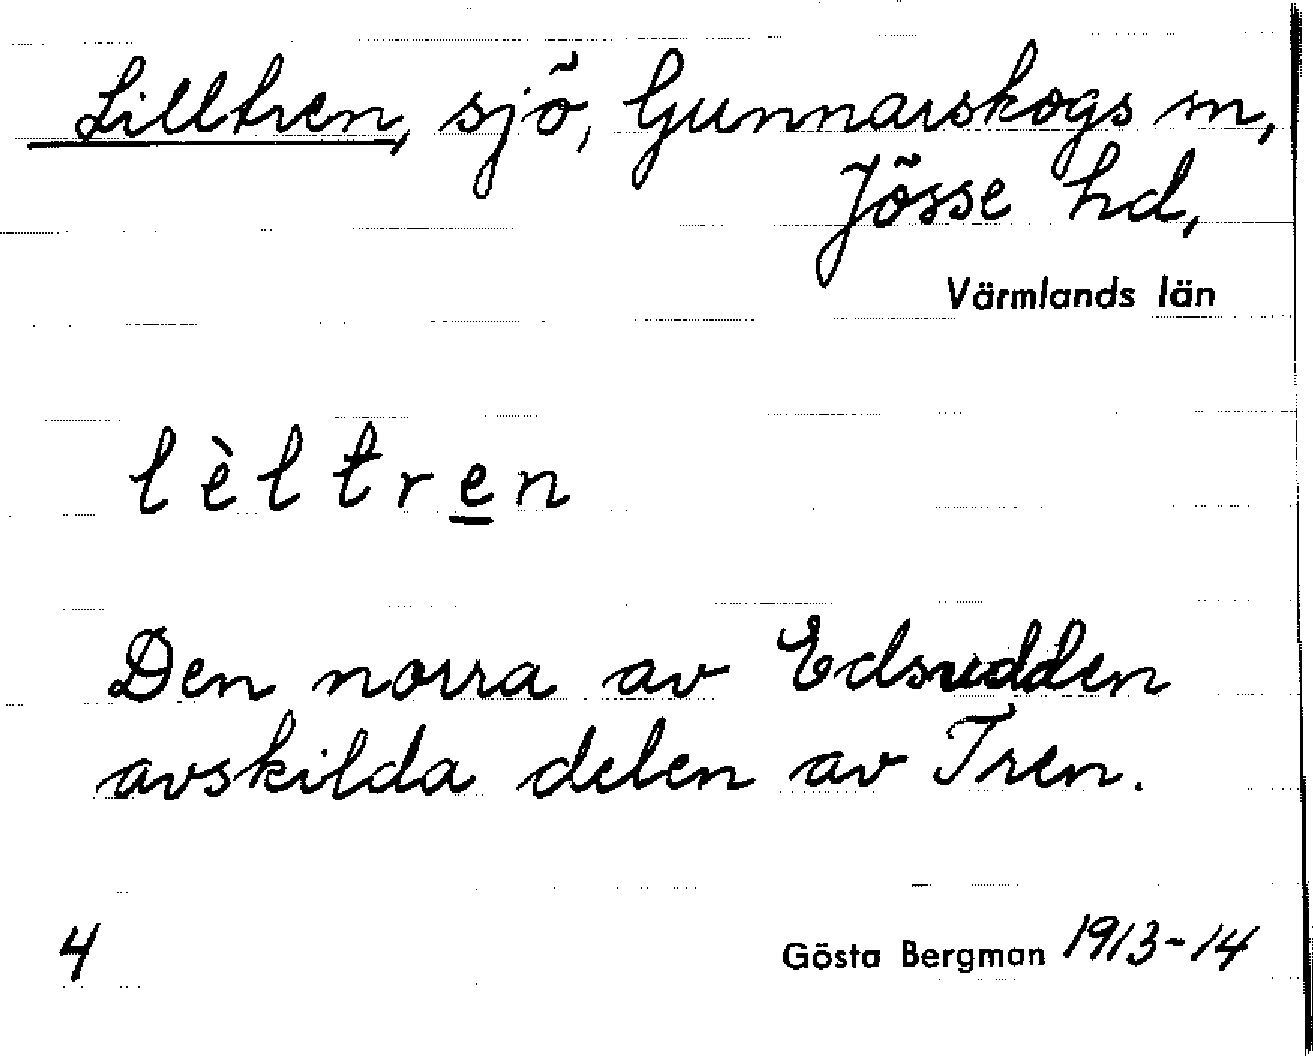 Lilltren, sjö, Gunnarskogs sn,
Jösse hd,
Värmlands län
lèltren
Den norra av Edsudden
avskilda delen av Tren.
4 Gösta Bergman 1913-14